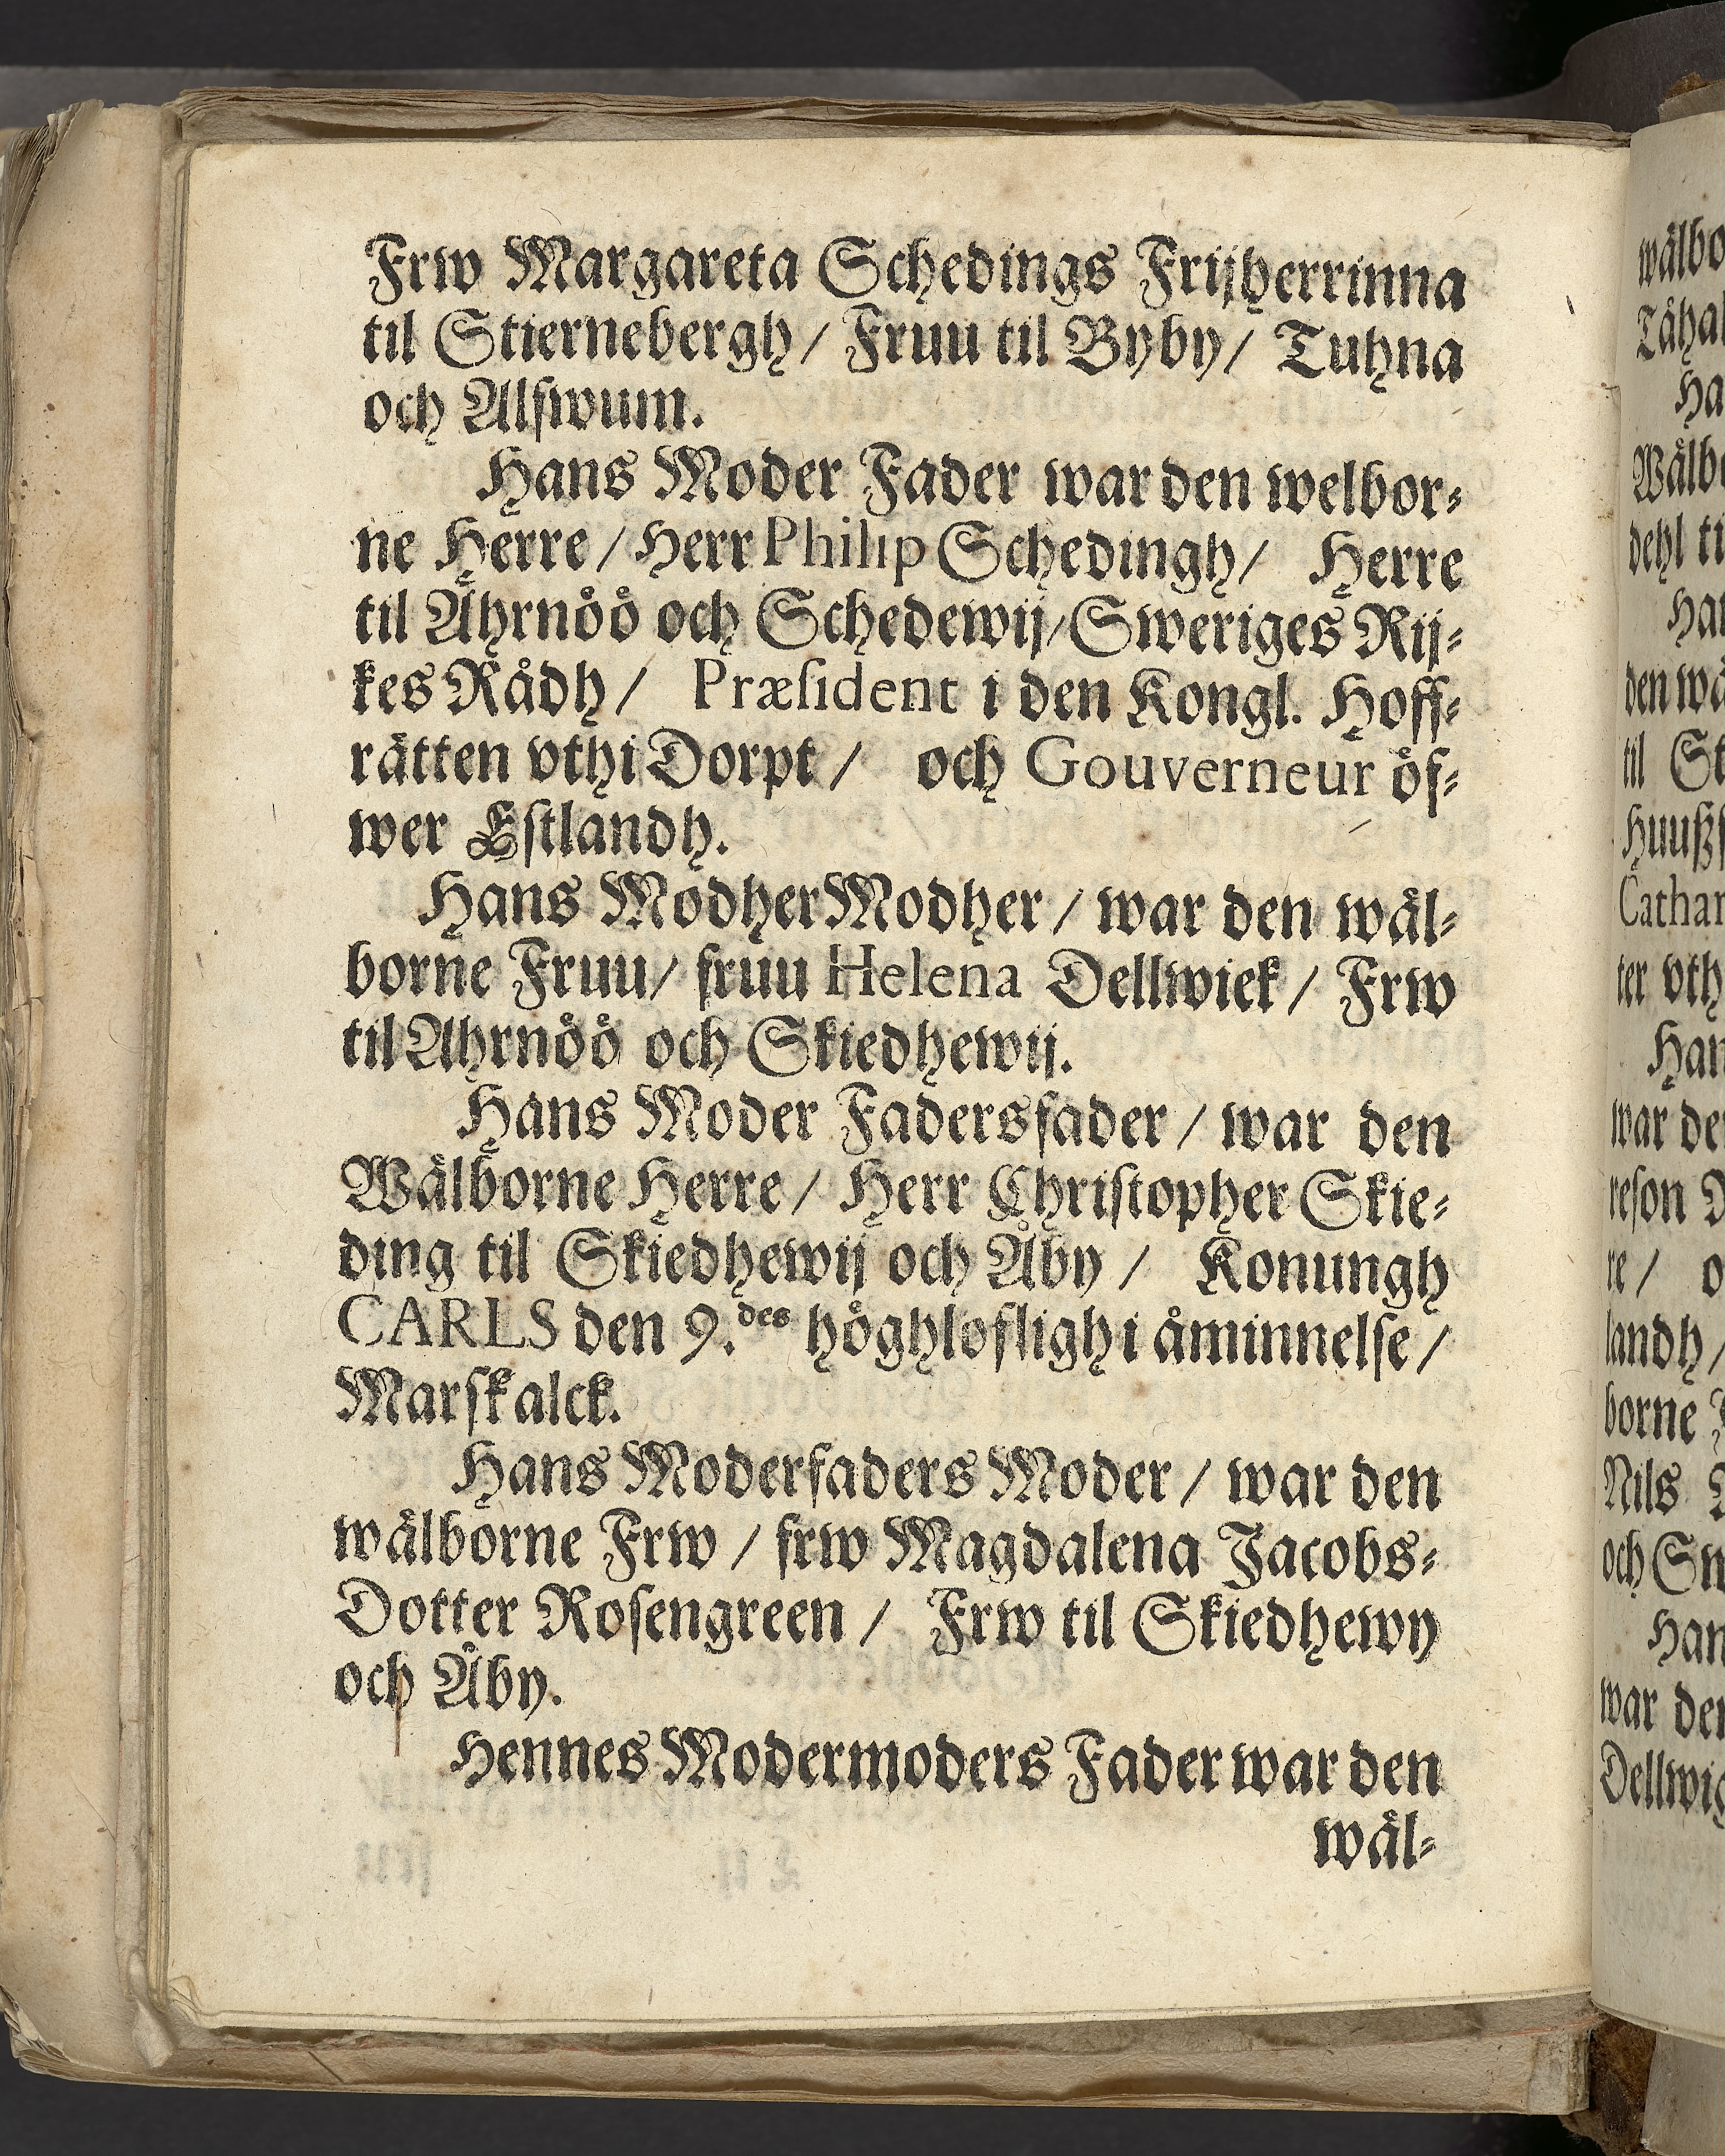 Frw Margareta Schedings Frijherrinna
til Stiernebergh / Fruu til Byby / Tuhna
och Alswum.
Hans Moder Fader war den welbor⸗
ne Herre / Herr Philip Schedingh / Herre
til Åhrnöö och Schedewij / Sweriges Rij⸗
kes Rådh / Præsident i den Kongl. Hoff⸗
rätten vthi Dorpt / och Gouverneur öf⸗
wer Estlandh.
Hans Modher Modher / war den wäl⸗
borne Fruu / fruu Helena Dellwiek / Frw
til Ahrnöö och Skiedhewij.
Hans Moder Fadersfader / war den
Wälborne Herre / Herr Christopher Skie⸗
ding til Skiedhewij och Åby / Konungh
CARLS den 9.des höghloflighi åminnelse /
Marskalck.
Hans Moderfaders Moder / war den
wälborne Frw / frw Magdalena Jacobs⸗
Dotter Rosengreen / Frw til Skiedhewy
och Åby.
Hennes Modermoders Fader war den
wäl⸗
wälbo
Tåha
Ha
Wälb
dehl ti
Han
den wä
til St
Huußf
Cathar
ter vth
Han
war de
reson D
re / o
landh /
borne
Nils
och Sw
Han
war den
Dellwig